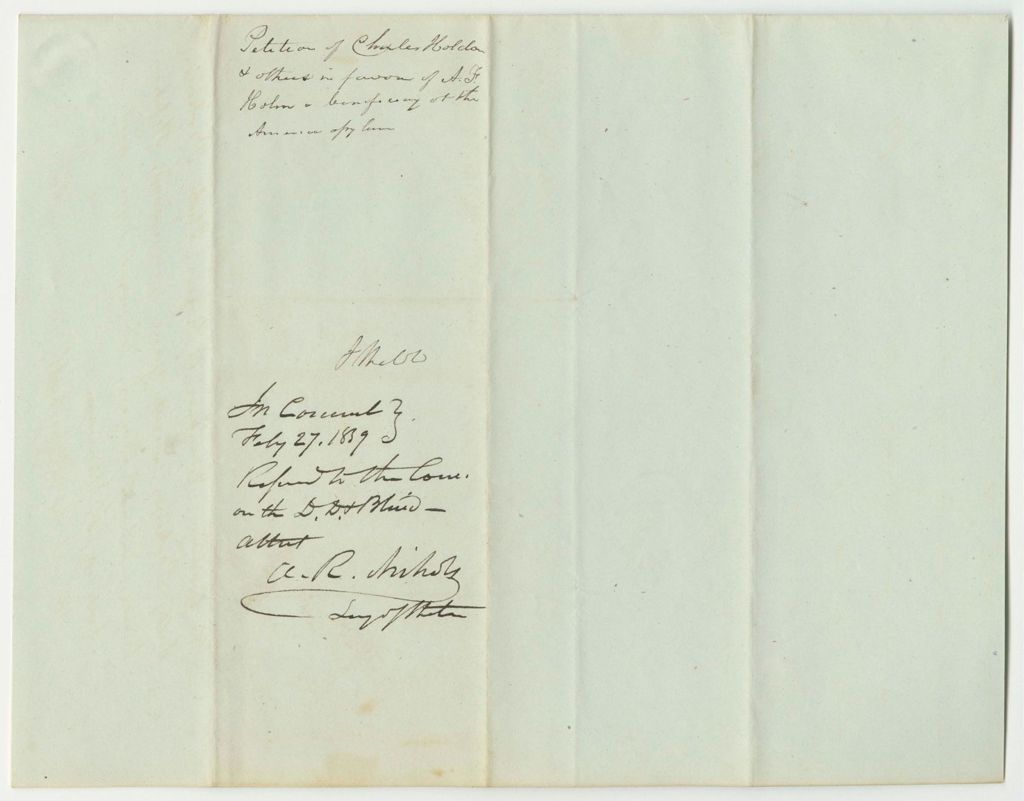 Petition of Charles Holden
& others in favour of A. F.
Holm a beneficiary at the
American Asylum
In Council }
Feby 27. 1839 }
Referred to the Com.
on the D. D. & Blind —
Attest
A. R. Nichols
Secy of State